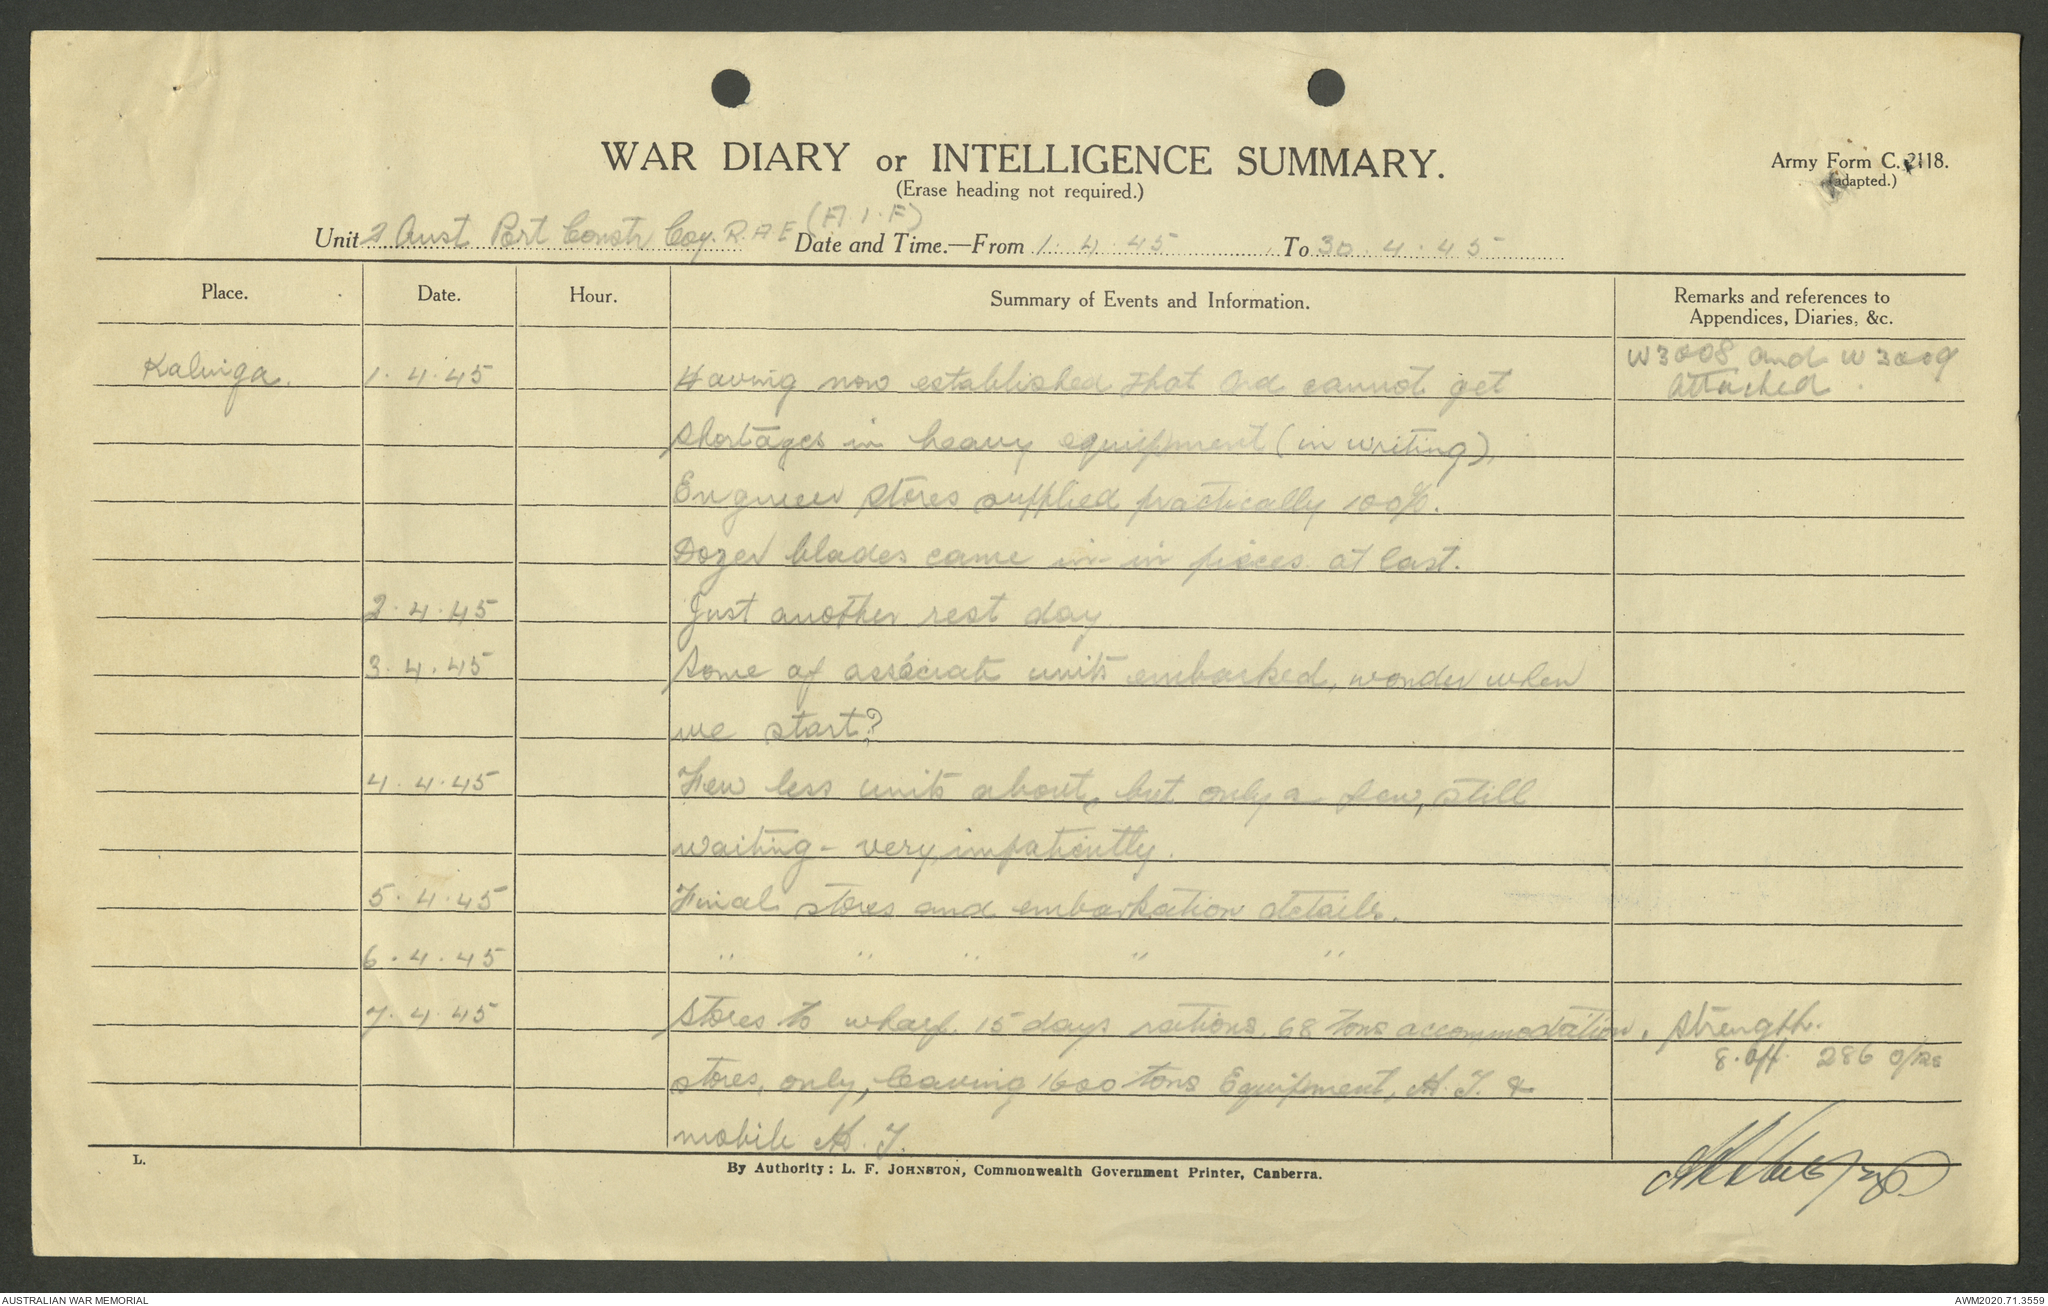 WAR DIARY or INTELLIGENCE SUMMARY.
Army Form C. 2118.
(Erase heading not required.)
(adapted.)
Unit 2 Aust Port Constr Coy. R.A.E (A.I.F) Date and Time.—From 1.4.45 To 30.4.45
Place. Date. Hour. Summary of Events and Information. Remarks and references to
Appendices, Diaries, &c.
Kalinga. 1.4.45 Having now established that Ord cannot get W3008 and W3009
attached.
shortages in heavy equipment (in writing).
Engineer stores supplied practically 100%.
Dozer blades came in - in pieces at last.
2.4.45 Just another rest day
3.4.45 Some of associate units embarked, wonder when
we start?
4.4.45 Few less units about, but only a few, still
waiting - very impatiently.
5.4.45 Final stores and embarkation details.
6.4.45 " " " " "
7.4.45 Stores to wharf. 15 days rations, 68 tons accommodation. Strength.
8. Off. 286 O/Rs
stores, only, leaving 1600 tons Equipment, &
mobile
L. By Authority: L. F. JOHNSTON, Commonwealth Government Printer, Canberra.
AUSTRALIAN WAR MEMORIAL
AWM2020.71.3559